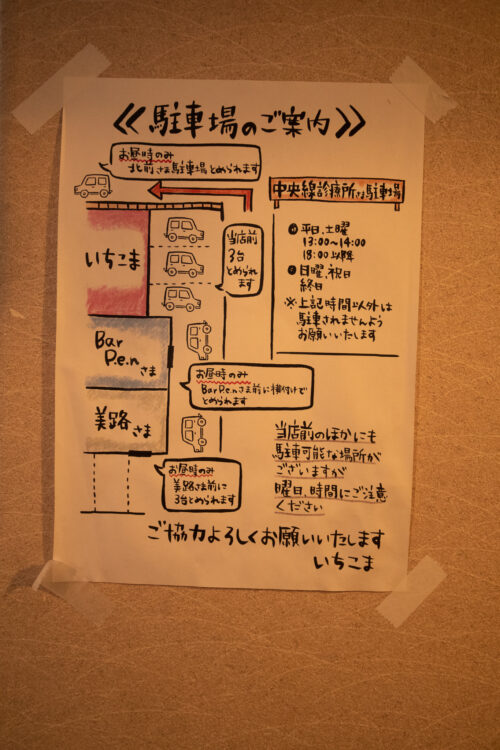 ≪駐車場のご案内≫
お昼時のみ
北前さま駐車場とめられます
中央線診療所さま駐車場
いちこま
当店前
3台
とめられ
ます
◎平日、土曜
13:00~14:00
18:00以降
◎日曜、祝日
終日
※上記時間以外は
駐車されませんよう
お願いいたします
Bar
P.e.n さま
お昼時のみ
Bar P.e.nさま前に横付けで
とめられます
美路さま
お昼時のみ
美路さま前に
3台とめられます
当店前のほかにも
駐車可能な場所が
ございますが
曜日、時間にご注意
ください
ご協力よろしくお願いいたします
いちこま